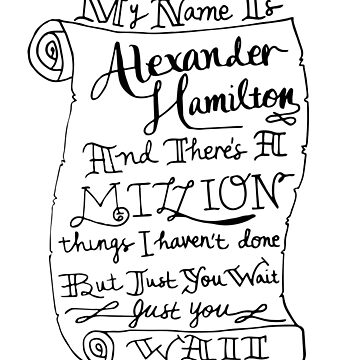 My Name Is
Alexander
Hamilton
And There's A
MILLION
things I haven't done
But Just You Wait
Just you
WAIT